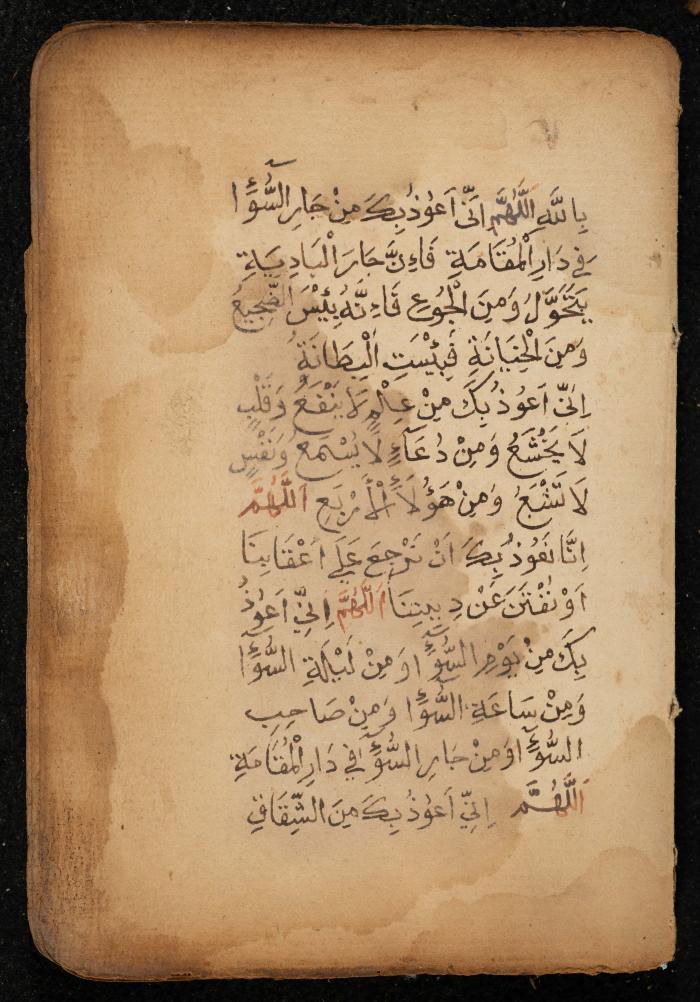 بِاللَّهِ اَللَّهُمَّ اِنِّي اَعُوْذُ بِكَ مِنْ جَارِ السُّوْۤءِا
فِي دَارِ الْمُقَامَةِ فَاِنَّ جَارَ الْبَادِيَةِ
يَتَحَوَّلُ وَمِنَ الْجُوْعِ فَاِنَّهُ بِئْسَ الضَّجِيْعُ
وَمِنَ الْخِيَانَةِ فَبِئْسَتِ الْبِطَانَةُ
اِنِّي اَعُوْذُ بِكَ مِنْ عِلْمٍ لَا يَنْفَعُ وَقَلْبٍ
لَا يَخْشَعُ وَمِنْ دُعَاۤءٍ لَا يُسْمَعُ وَنَفْسٍ
لَا تَشْبَعُ وَمِنْ هَؤُلَاۤءِ الْاَرْبَعِ اَللَّهُمَّ
اِنَّا نَعُوْذُ بِكَ اَنْ نَرْجِعَ عَلَى اَعْقَابِنَا
اَوْ نُفْتَنَ عَنْ دِيْنِنَا اَللَّهُمَّ اِنِّي اَعُوْذُ
بِكَ مِنْ يَوْمِ السُّوْۤءِا وَمِنْ لَيْلَةِ السُّوْۤءِا
وَمِنْ سَاعَةِ السُّوْۤءِا وَمِنْ صَاحِبِ
السُّوْۤءِا وَمِنْ جَارِ السُّوْۤءِ فِي دَارِ الْمُقَامَةِ
اَللَّهُمَّ اِنِّي اَعُوْذُ بِكَ مِنَ الشِّقَاقِ